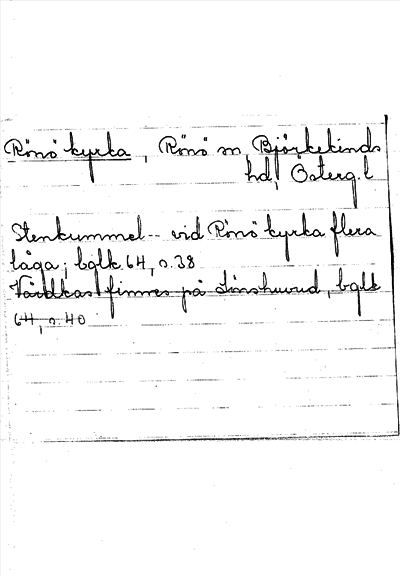 Rönö kyrka, Rönö sn, Björkekinds
hd, Österg.l
Stenkummel -- vid Rönö kyrka flera
låga; bglk 64, s.38
Vårdkas finnes på Linshuvud, bglk
64, s.40